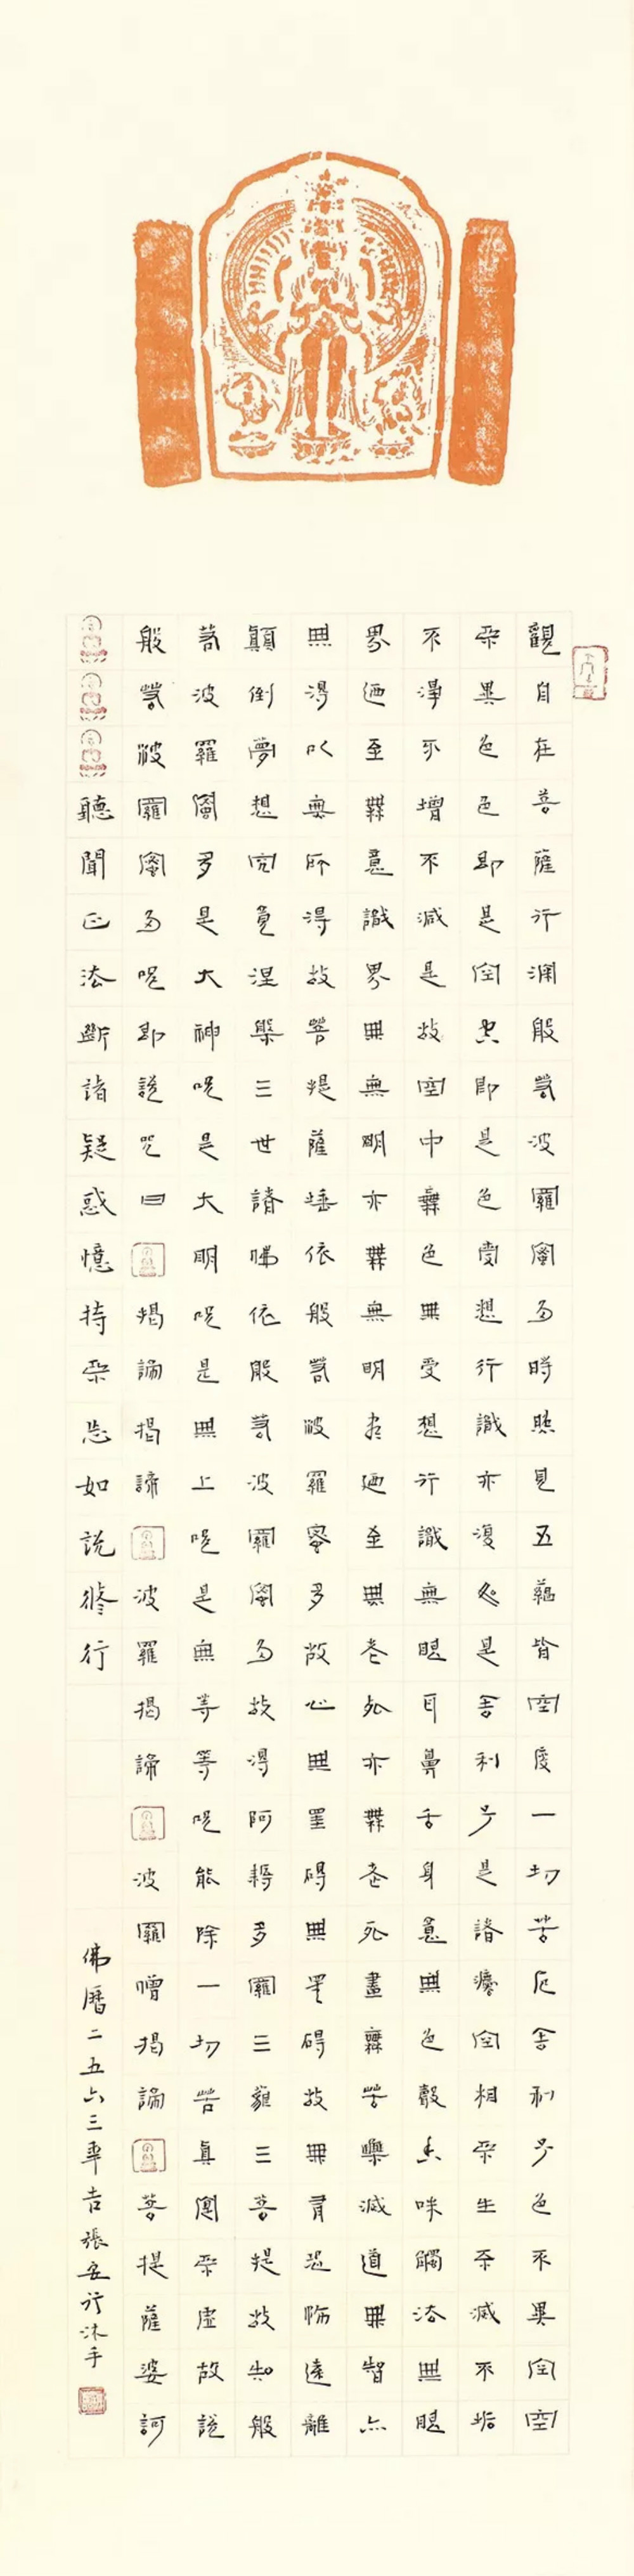 觀自在菩薩行深般若波羅蜜多時照見五蘊皆空度一切苦厄舍利子色不異空空
不異色色即是空空即是色受想行識亦復如是舍利子是諸法空相不生不滅不垢
不淨不增不減是故空中無色無受想行識無眼耳鼻舌身意無色聲香味觸法無眼
界迺至無意識界無無明亦無無明盡迺至無老死亦無老死盡無苦集滅道無智亦
無得以無所得故菩提薩埵依般若波羅蜜多故心無罣碍無罣碍故無有恐怖遠離
顛倒夢想究竟涅槃三世諸佛依般若波羅蜜多故得阿耨多羅三藐三菩提故知般
若波羅蜜多是大神咒是大明咒是無上咒是無等等咒能除一切苦真實不虛故說
般若波羅蜜多咒即說咒曰揭諦揭諦波羅揭諦波羅僧揭諦菩提薩婆訶
聽聞正法斷諸疑惑憶持不忘如說修行
佛曆二五六三年吉張安行沐手